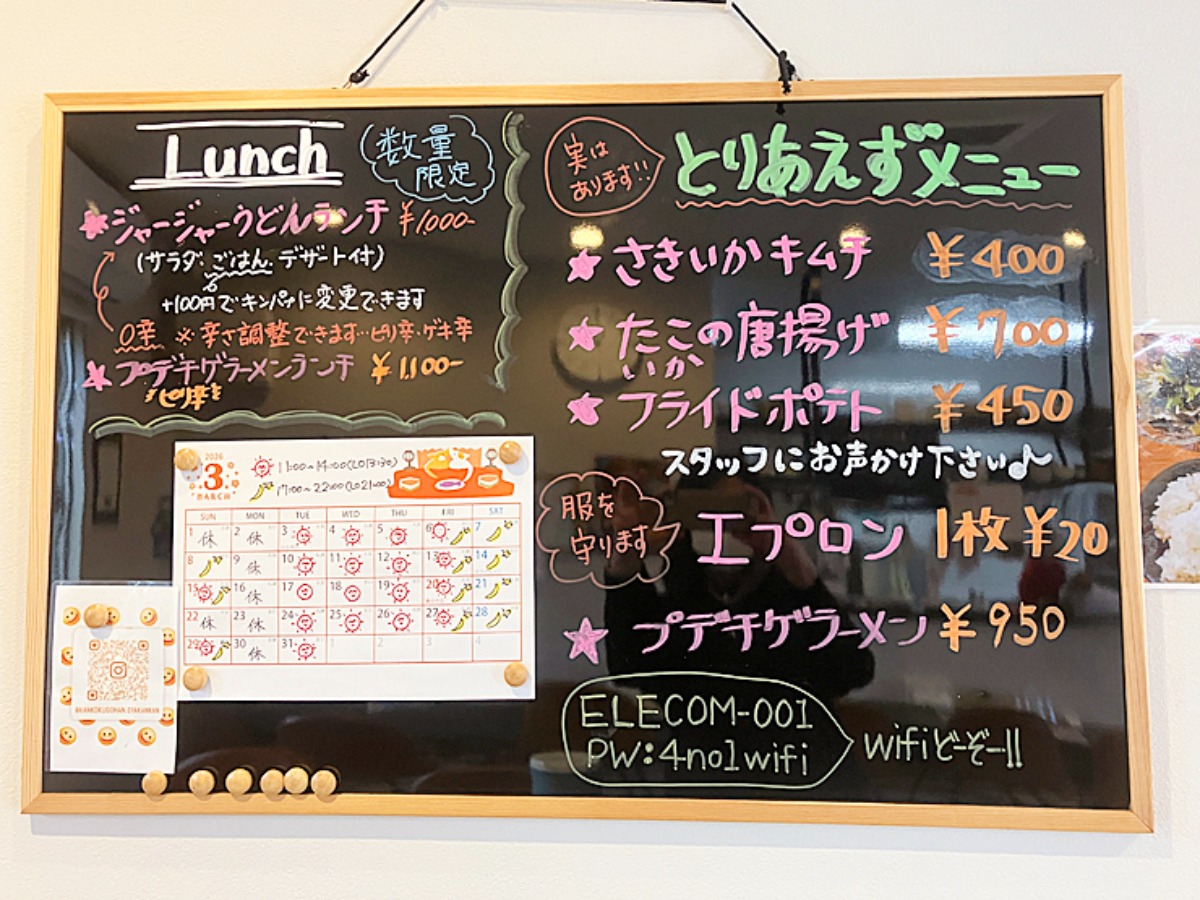 Lunch
数量
限定
ジャージャーうどんランチ ¥1,000-
(サラダ、ごはん、デザート付)
+100円でキンパに変更できます
0辛 ※辛さ調整できます…ピリ辛・ゲキ辛
プデチゲラーメンランチ ¥1,100-
ピリ辛
2026
3
MARCH
11:00~14:00(LO13:30)
17:00~22:00(LO21:00)
SUN MON TUE WED THU FRI SAT
1 休 2 休 3 4 5 6 7
8 9 休 10 11 12 13 14
15 16 休 17 18 19 20 21
22 休 23 休 24 25 26 27 28
29 30 休 31 1 2 3 4
実は
あります!!
とりあえずメニュー
さきいかキムチ ¥400
たこの唐揚げ ¥700
いか
フライドポテト ¥450
スタッフにお声かけ下さい♪
服を
守ります
エプロン 1枚 ¥20
プデチゲラーメン ¥950
ELECOM-001
PW:4no1wifi
wifiどーぞー!!